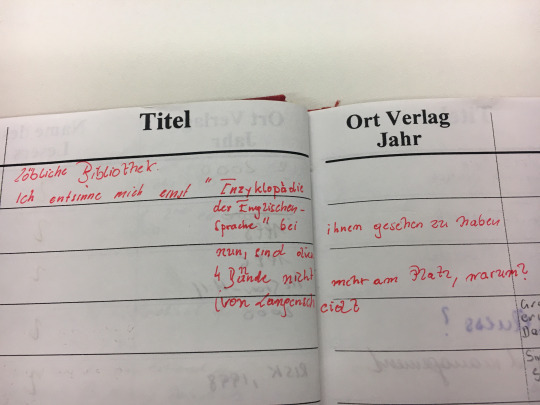 Titel
Ort Verlag
Jahr
löbliche Bibliothek.
Ich entsinne mich einst "Enzyklopädie
der Englischen-
sprache" bei ihnen gesehen zu haben
nun, sind die
4 Bände nicht mehr am Platz, warum?
(von Langensch eidt
RISK, 1998